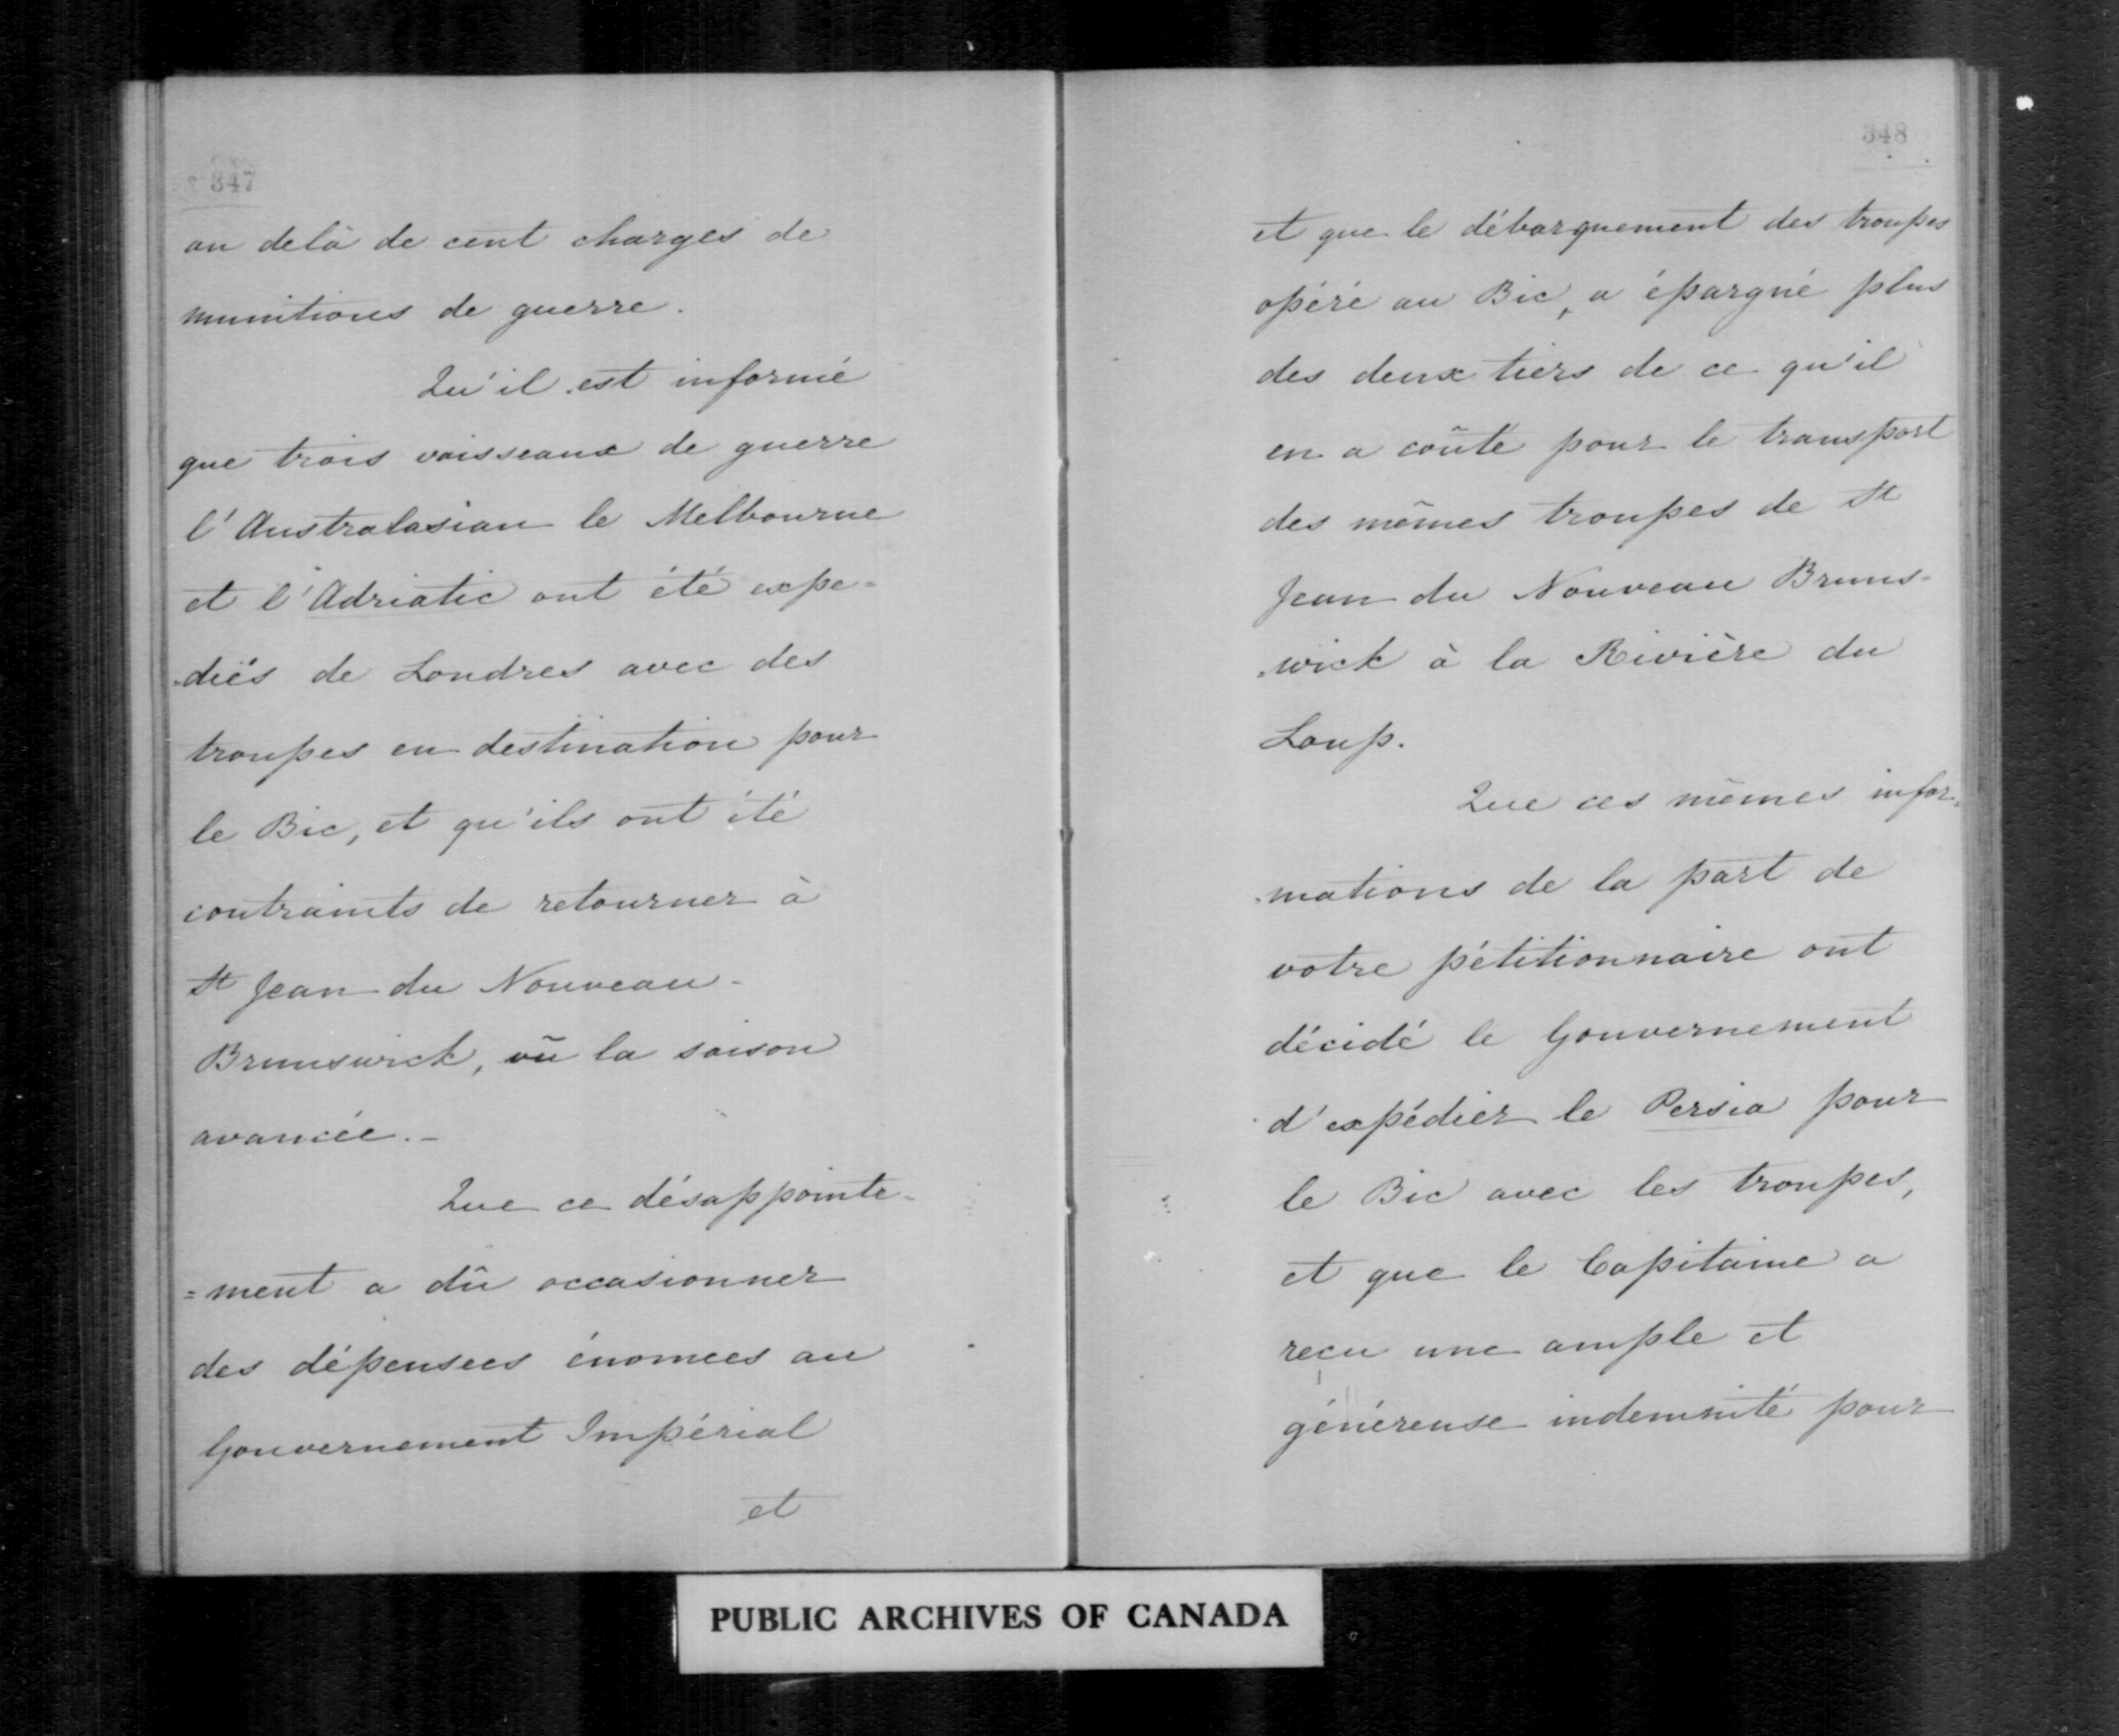 347
au delà de cent charges de
munitions de guerre.
Qu'il est informé
que trois vaisseaux de guerre
l'Australasian le Melbourne
et l'Adriatic ont été expe=
=diés de Londres avec des
troupes en destination pour
le Bic, et qu'ils ont été
contraints de retourner à
St Jean du Nouveau-
Brunswick, vû la saison
avancée.-
Que ce désappointe=
=ment a dû occasionner
des dépensees énomees au
Gouvernement Impérial
et
348
et que le débarquement des troupes
opéré au Bic, a épargné plus
des deux tiers de ce qu'il
en a coûté pour le transport
des mêmes troupes de St
Jean du Nouveau Bruns=
=wick à la Rivière du
Loup.
Que ces mêmes infor=
=mations de la part de
votre pétitionnaire ont
décidé le Gouvernement
d'expédier le Persia pour
le Bic avec les troupes,
et que le Capitaine a
reçu une ample et
généreuse indemnité pour
PUBLIC ARCHIVES OF CANADA